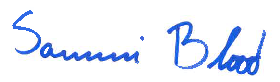 Sammi Blood